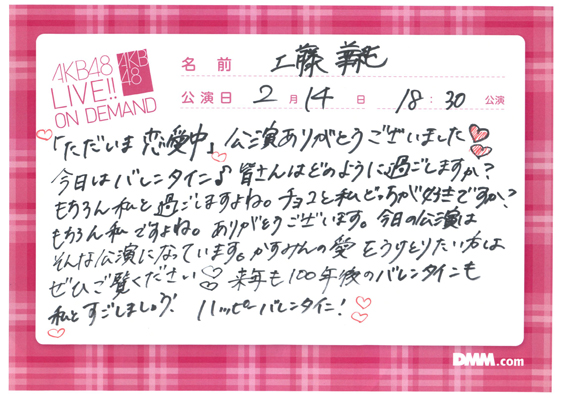 AKB48
LIVE!!
ON DEMAND
AKB
48
名前 工藤 華純
公演日 2月14日 18:30公演
「ただいま恋愛中」公演ありがとうございました
今日はバレンタイン♪皆さんはどのように過ごしますか?
もちろん私と過ごしますよね。チョコと私どっちが好きですか?
もちろん私ですよね。ありがとうございます。今日の公演は
そんな公演になっています。かすみんの愛をうけとりたい方は
ぜひご覧ください♡ 来年も100年後のバレンタインも
私とすごしましょう! ハッピーバレンタイン!
DMM.com